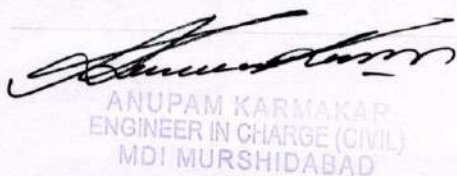 ANUPAM KARMAKAR
ENGINEER IN CHARGE (CIVIL)
MDI MURSHIDABAD